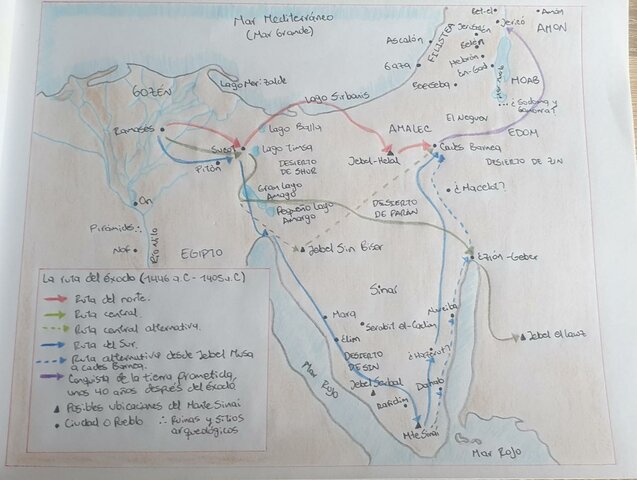 Mar Mediterráneo
(Mar Grande)
Bet-el
Amón
Jericó
AMON
Jerusalén
Ascalón
FILISTEA
Belén
Hebrón
Gaza
En-Gadi
Mar Muerto
MOAB
Beerseba
¿Sodoma y
Gomorra?
GOZÉN
Lago Menzaleh
Lago Sirbonis
El Neguev
Ramases
Lago Balla
AMALEC
EDOM
Sucot
Lago Timsa
Cades Barnea
Pitón
DESIERTO
DE SHUR
Jebel-Helal
DESIERTO DE ZIN
On
Gran Lago
Amargo
¿Macelot?
Pequeño Lago
Amargo
DESIERTO
DE PARÁN
Pirámides
Nof
Río Nilo
EGIPTO
Jebel Sin Bisar
Ezión-Geber
Sinaí
La ruta del éxodo (-1446 a.C - 1405 a.C)
Ruta del norte.
Ruta central.
Ruta central alternativa.
Ruta del Sur.
Ruta alternativa desde Jebel Musa
a cades Barnea.
Conquista de la tierra prometida,
unos 40 años después del éxodo.
Posibles ubicaciones del Monte Sinaí
Ciudad o Pueblo
Ruinas y Sitios
arqueológicos
Mara
Nuweiba
Serabit el-Cadim
Jebel el Lawz
Elim
DESIERTO
DE SIN
¿Hazerot?
Mar Rojo
Jebel Serbal
Dahab
Refidim
Mte Sinaí
Mar Rojo